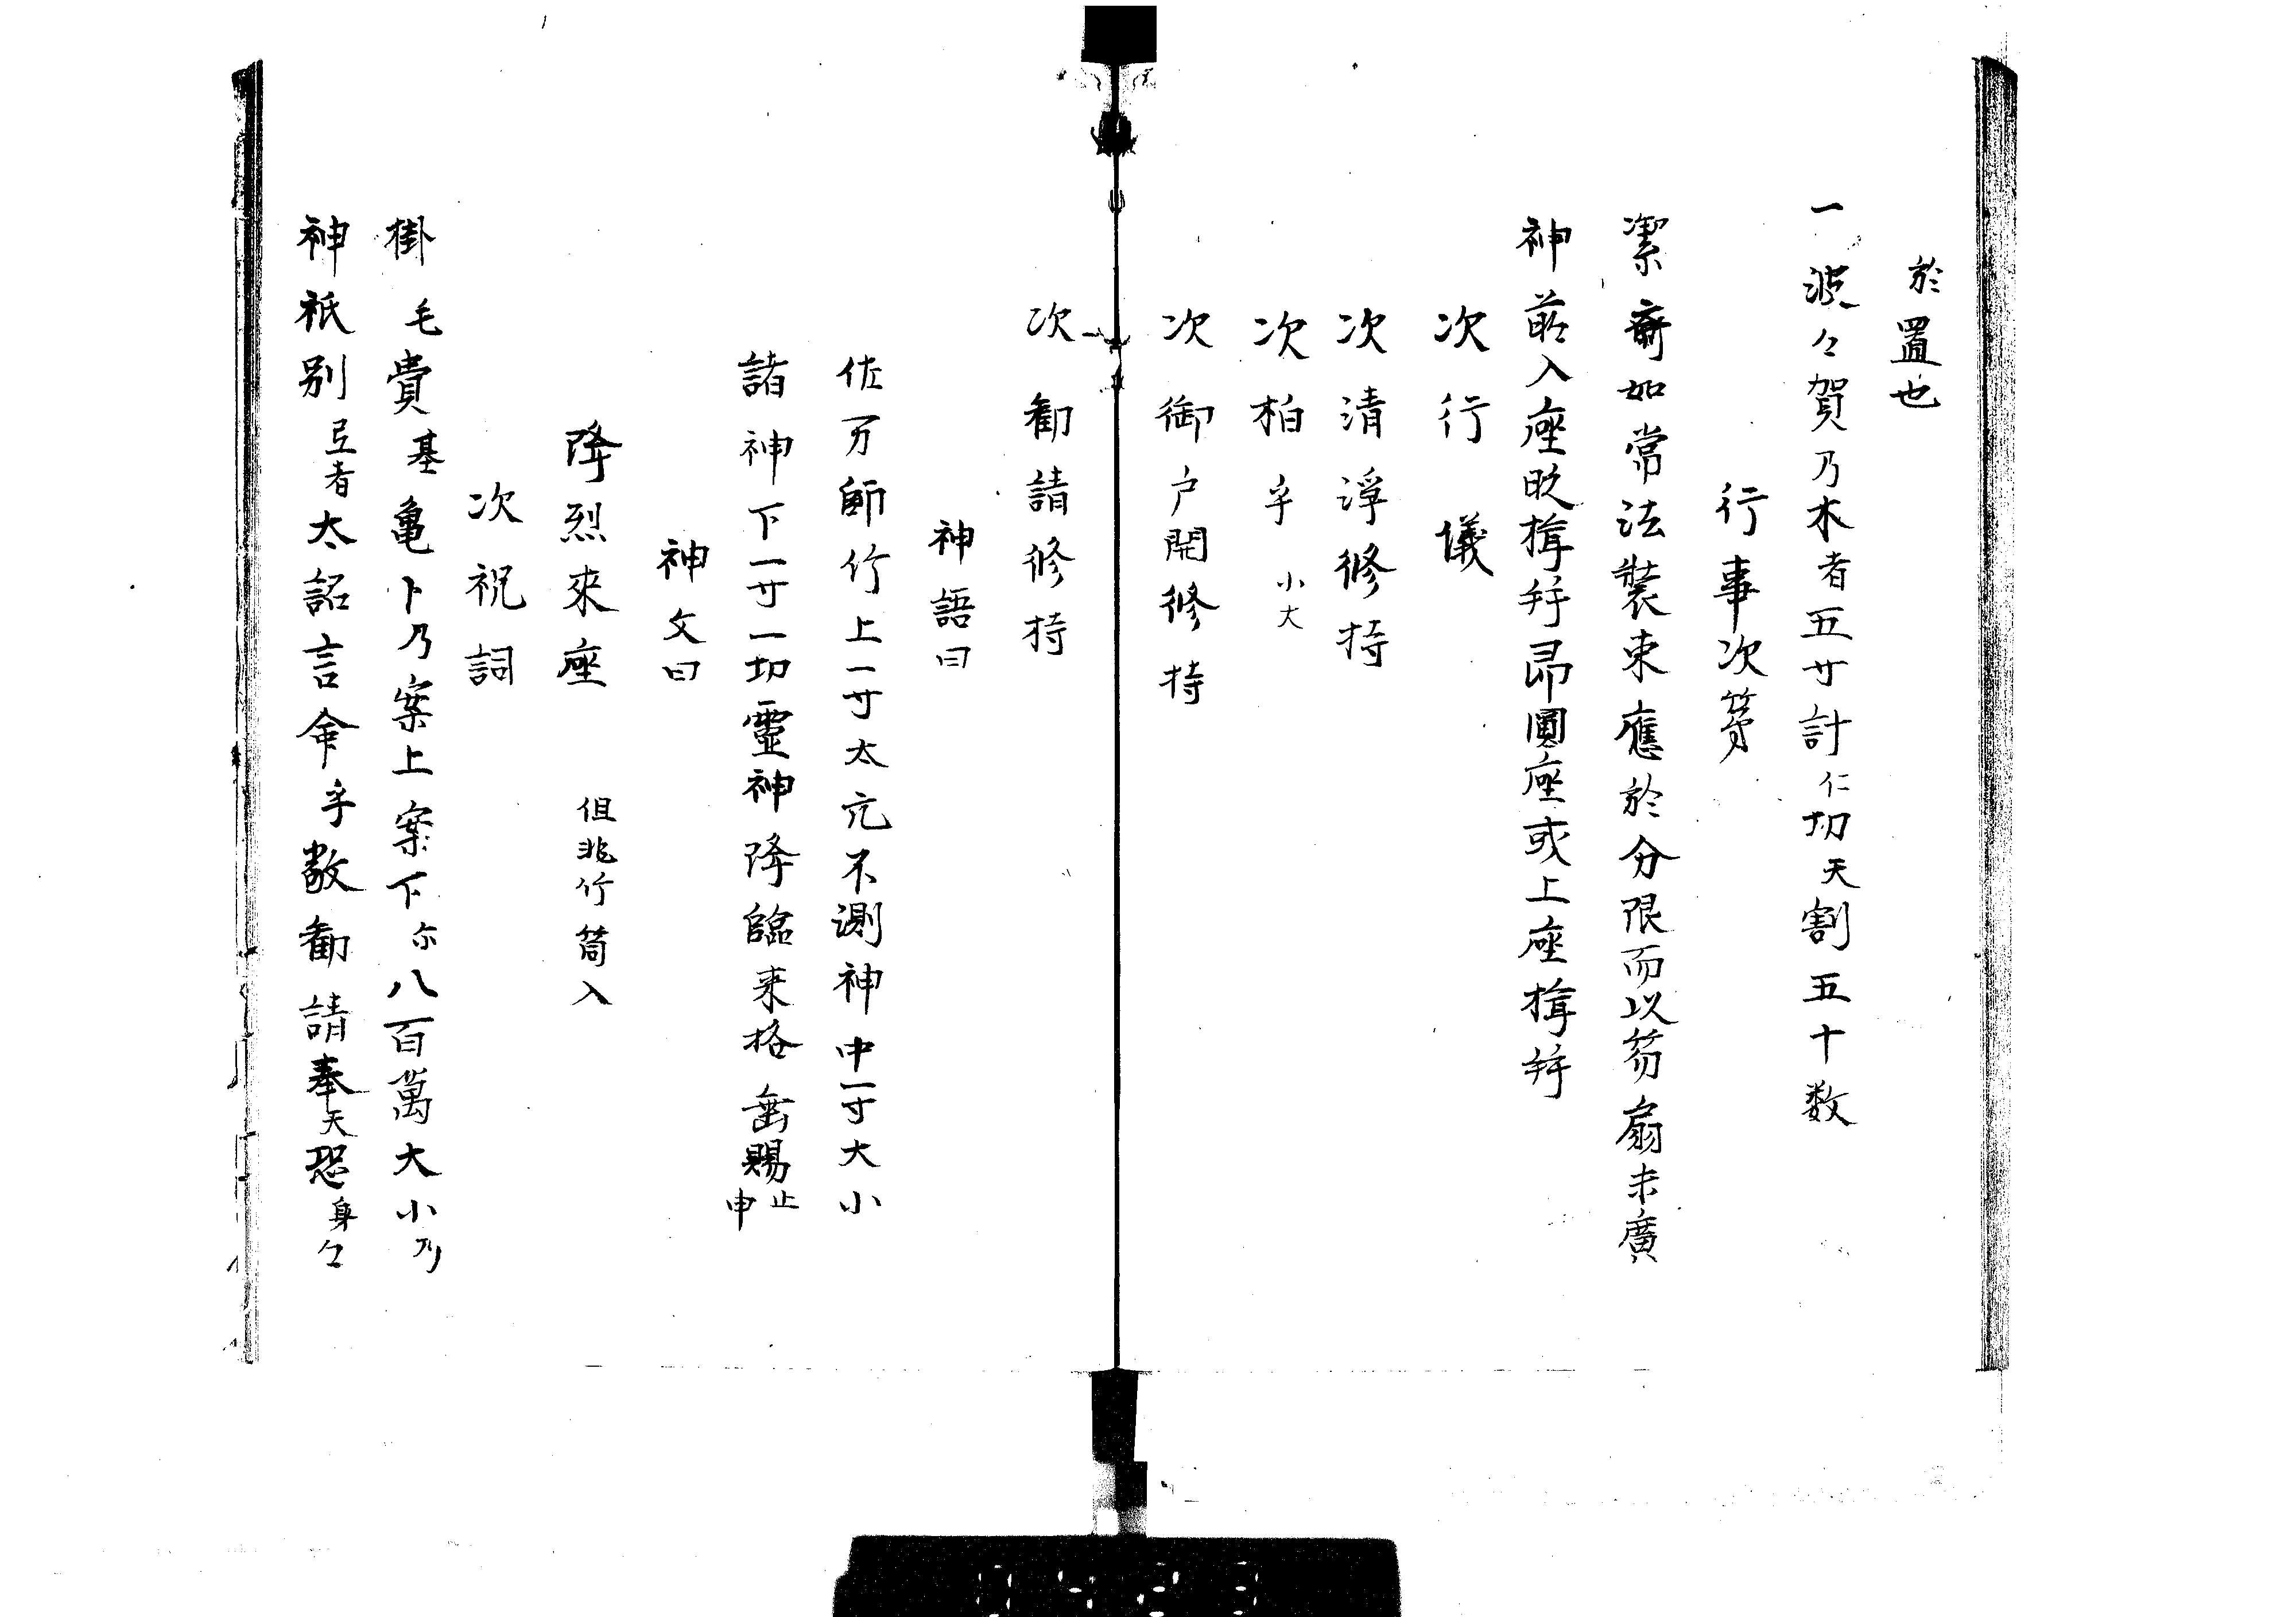 於置也
一波々賀乃木者五寸計仁切天割五十数
行事次第
潔齋如常法裝束應於分限而以笏扇末廣
神前入座既揖拜昂圓座或上座揖拜
次行儀
次清淨修持
次柏手 小大
次御戸開修持
次勸請修持
神語曰
佐万師竹上一寸太元不測神中一寸大小
諸神下一寸一切靈神降臨来格垂賜止申
神文曰
降烈來座 但兆竹筒入
次祝詞
掛毛貴基亀卜乃案上案下尓八百萬大小乃
神祇別弖者太詔言命乎敬勸請奉天恐身々